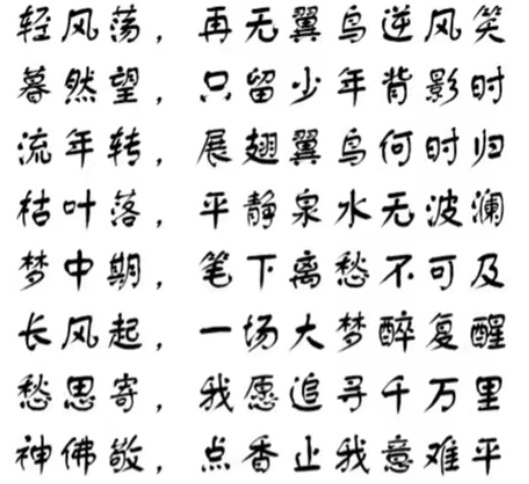 轻风荡，再无翼鸟逆风笑
暮然望，只留少年背影时
流年转，展翅翼鸟何时归
枯叶落，平静泉水无波澜
梦中期，笔下离愁不可及
长风起，一场大梦醉复醒
愁思寄，我愿追寻千万里
神佛敬，点香止我意难平